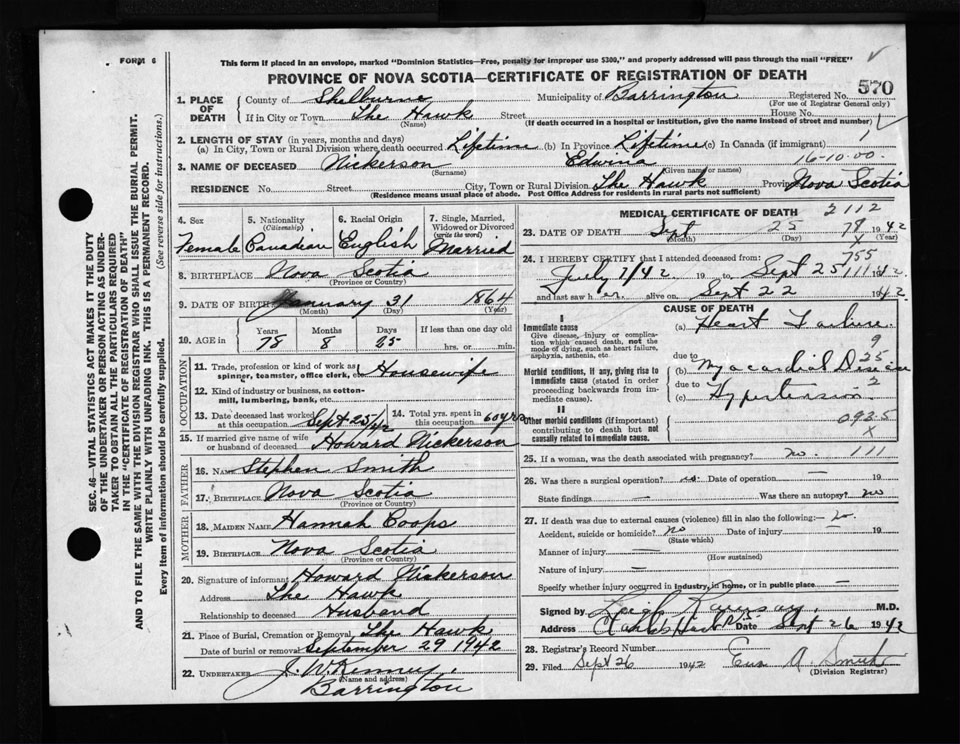 FORM 6
This form if placed in an envelope, marked "Dominion Statistics—Free, penalty for improper use $300," and properly addressed will pass through the mail "FREE"
PROVINCE OF NOVA SCOTIA—CERTIFICATE OF REGISTRATION OF DEATH
570
1. PLACE OF DEATH County of Shelburne Municipality of Barrington Registered No.
(For use of Registrar General only)
If in City or Town The Hawk Street House No.
(Name) (If death occurred in a hospital or institution, give the name instead of street and number)
2. LENGTH OF STAY (in years, months and days)
(a) In City, Town or Rural Division where death occurred Lifetime (b) In Province Lifetime (c) In Canada (if immigrant)
3. NAME OF DECEASED Nickerson Edwina 16-10-00.
(Surname) (Given name or names)
RESIDENCE No. Street City, Town or Rural Division The Hawk Province Nova Scotia
(Residence means usual place of abode. Post Office Address for residents in rural parts not sufficient)
4. Sex 5. Nationality (Citizenship) 6. Racial Origin 7. Single, Married, Widowed or Divorced (write the word)
Female Canadian English Married
8. BIRTHPLACE Nova Scotia
(Province or Country)
9. DATE OF BIRTH January 31 1864
(Month) (Day) (Year)
10. AGE in Years Months Days If less than one day old
78 8 25 hrs. or min.
OCCUPATION
11. Trade, profession or kind of work as spinner, teamster, office clerk, etc. Housewife
12. Kind of industry or business, as cotton-mill, lumbering, bank, etc.
13. Date deceased last worked at this occupation Sept 25/42 14. Total yrs. spent in this occupation 60 yrs
15. If married give name of wife or husband of deceased Howard Nickerson
FATHER
16. NAME Stephen Smith
17. BIRTHPLACE Nova Scotia
(Province or Country)
MOTHER
18. MAIDEN NAME Hannah Coops
19. BIRTHPLACE Nova Scotia
(Province or Country)
20. Signature of informant Howard Nickerson
Address The Hawk
Relationship to deceased Husband
21. Place of Burial, Cremation or Removal The Hawk
Date of burial or removal September 29 1942
22. UNDERTAKER J. W. Kenney.
(Name and address)
Barrington
MEDICAL CERTIFICATE OF DEATH 2112
23. DATE OF DEATH Sept 25 78 1942
(Month) (Day) X (Year)
24. I HEREBY CERTIFY that I attended deceased from: 755
July 7/42 19 to Sept 25 111 1942
and last saw her alive on Sept 22 1942
CAUSE OF DEATH
I
Immediate cause (a) Heart Failure
Give disease, injury or complication which caused death, not the mode of dying, such as heart failure, asphyxia, asthenia, etc.
9
due to 25
Morbid conditions, if any, giving rise to immediate cause (stated in order proceeding backwards from immediate cause).
(b) Myocardial Disease
due to 2
(c) Hypertension
II
Other morbid conditions (if important) contributing to death but not causally related to immediate cause.
093.5
X
25. If a woman, was the death associated with pregnancy? no. 111
26. Was there a surgical operation? no Date of operation — 19
State findings — Was there an autopsy? no
27. If death was due to external causes (violence) fill in also the following:— 2
Accident, suicide or homicide? no Date of injury — 19
(State which)
Manner of injury —
(How sustained)
Nature of injury —
Specify whether injury occurred in industry, in home, or in public place —
Signed by Leigh Ramsay, M.D.
Address Date Sept 26 1942
28. Registrar's Record Number
29. Filed Sept 26 1942 A. Smith
(Division Registrar)
SEC. 46—VITAL STATISTICS ACT MAKES IT THE DUTY
OF THE UNDERTAKER OR PERSON ACTING AS UNDER-
TAKER TO OBTAIN ALL THE PARTICULARS REQUIRED
IN THE "CERTIFICATE OF REGISTRATION OF DEATH"
AND TO FILE THE SAME WITH THE DIVISION REGISTRAR WHO SHALL ISSUE THE BURIAL PERMIT.
WRITE PLAINLY WITH UNFADING INK. THIS IS A PERMANENT RECORD.
Every item of information should be carefully supplied. (See reverse side for instructions.)